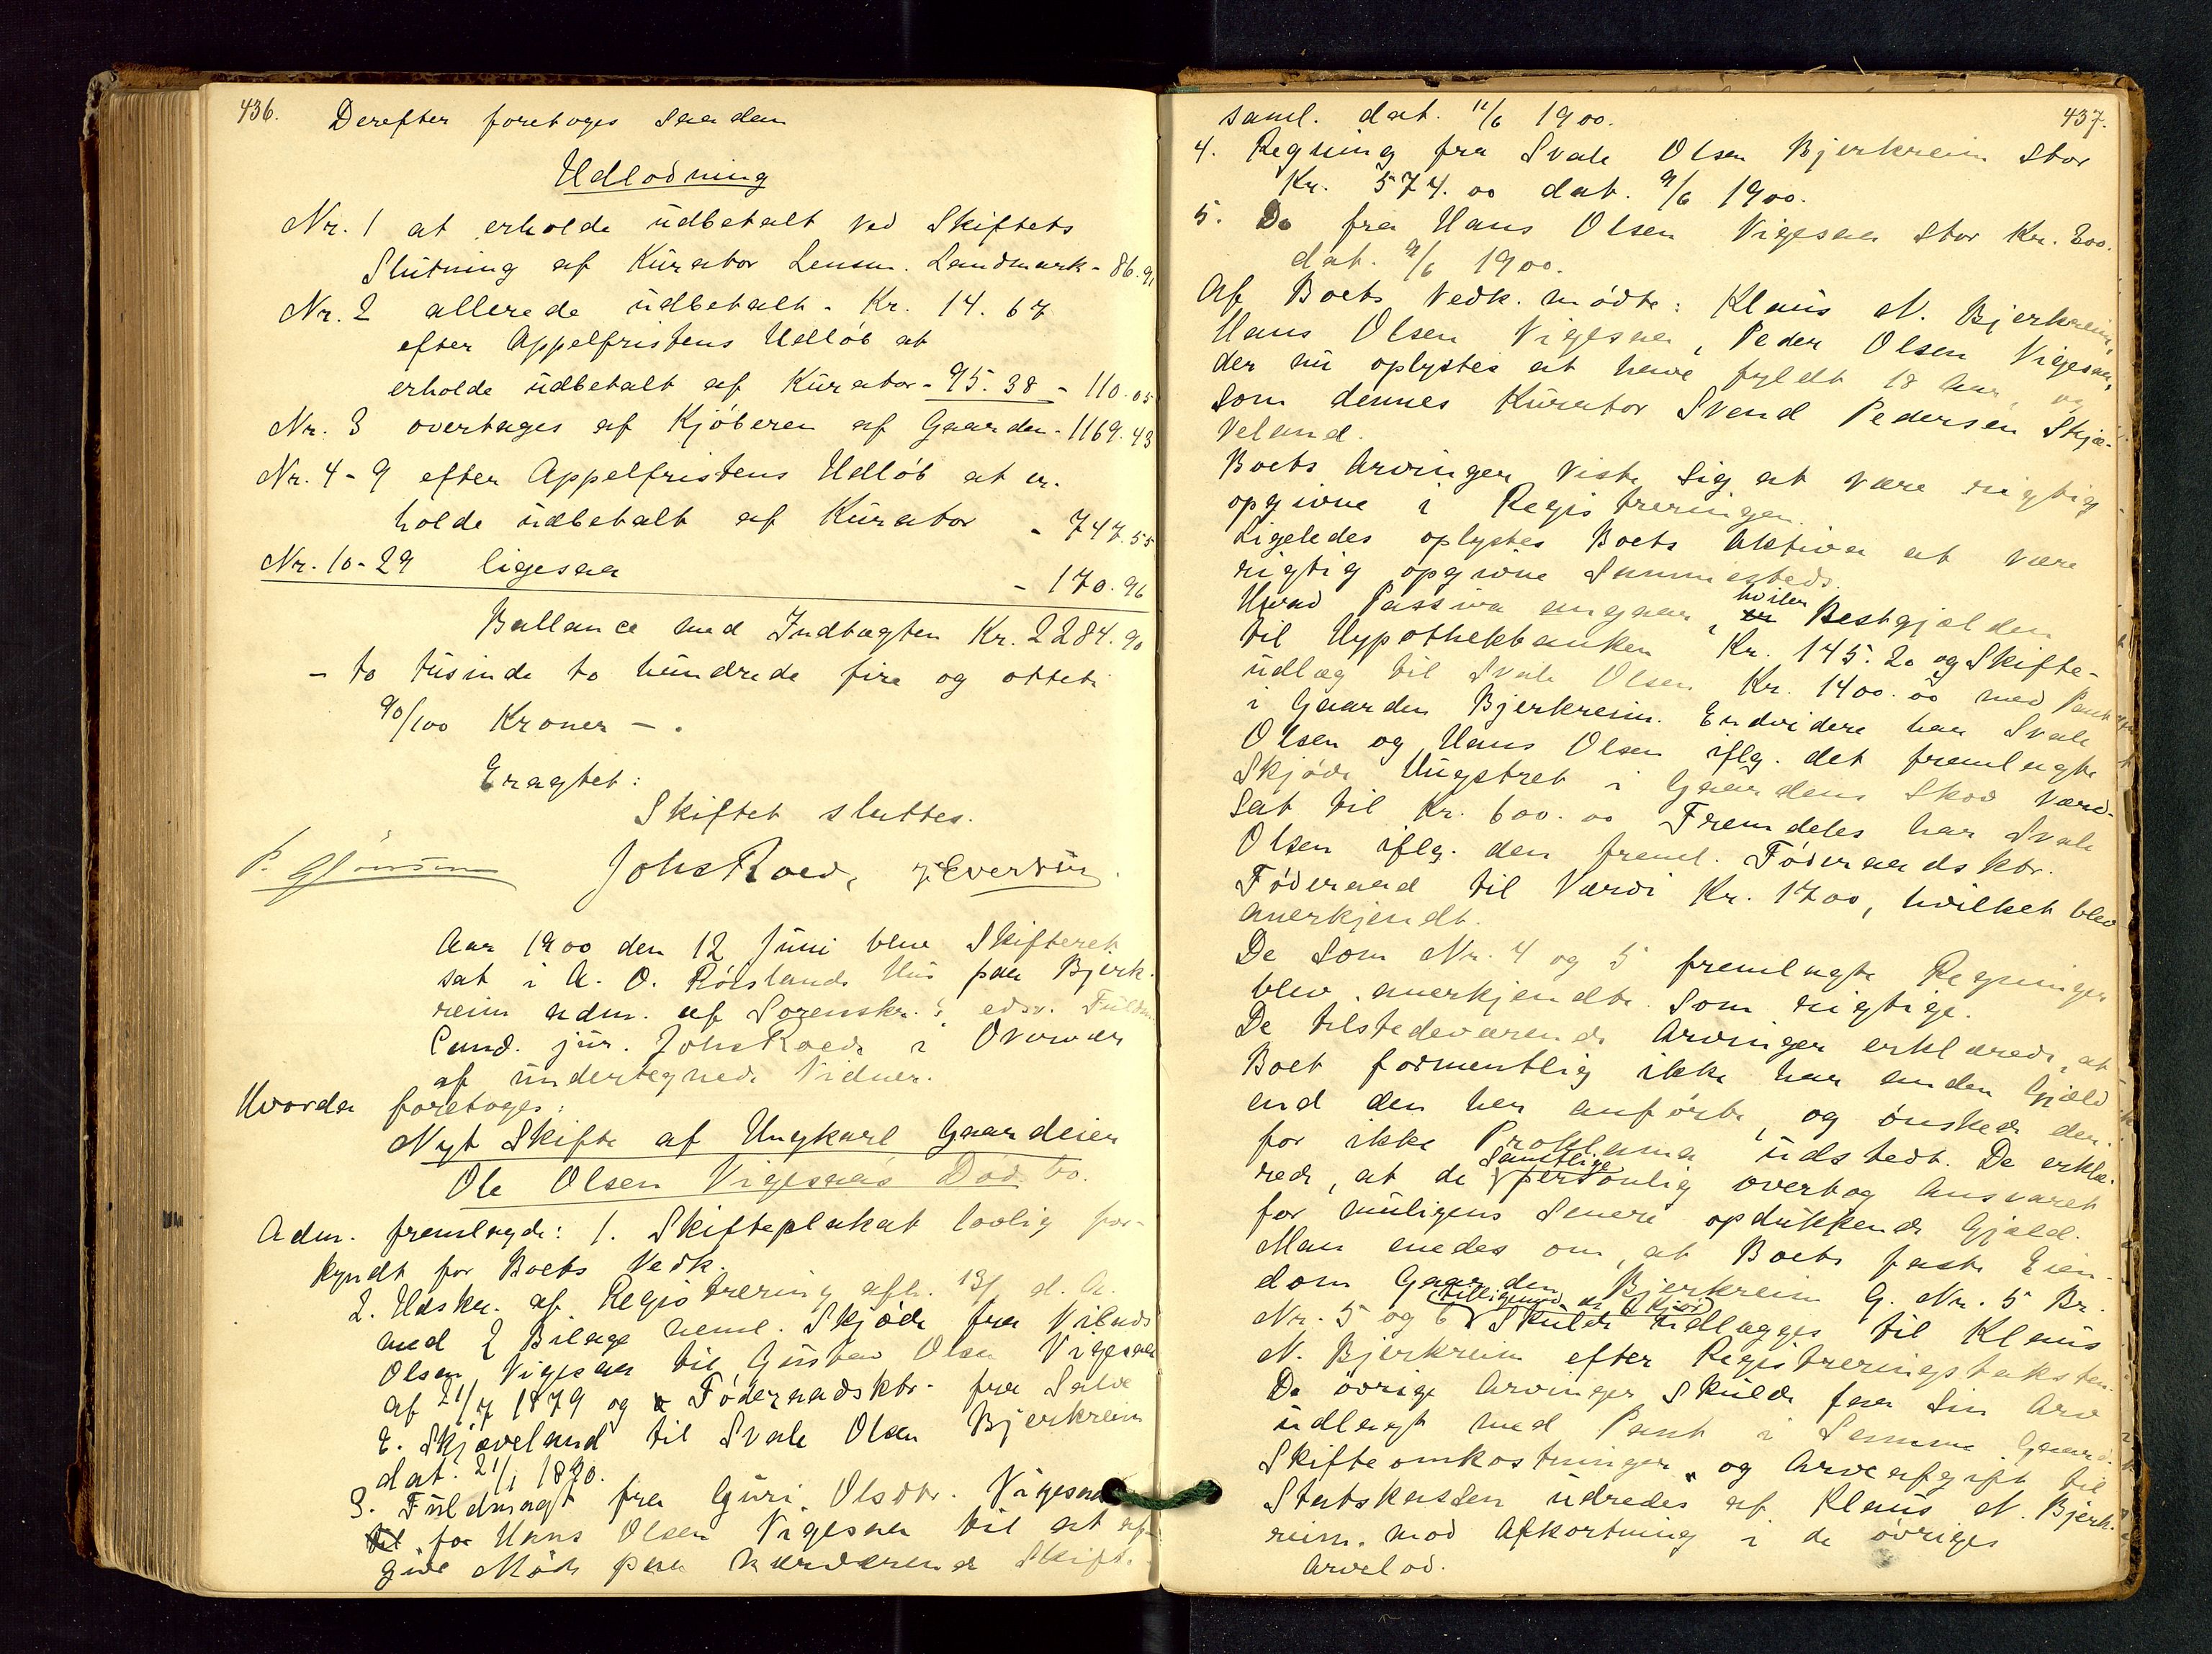 436.
Derefter foretoges saadan
Udlodning
Nr. 1 at erholde udbetalt ved Skiftets
Slutning af Kurator Lensm. Landmark - 86.91
Nr. 2 allerede udbetalt - Kr. 14.67
efter Appelfristens Udløb at
erholde udbetalt af Kurator - 95.38 - 110.05
Nr. 3 overtages af Kjøberen af Gaarden - 1169.43
Nr. 4-9 efter Appelfristens Udløb at er-
holde udbetalt af Kurator - 747.55
Nr. 10-29 ligesaa - 170.96
Ballance med Indtægten Kr. 2284.90
- to tusinde to hundrede fire og otteti
90/100 Kroner - .
Eragtet:
Skiftet sluttes.
Johs Roed,
Aar 1900 den 12 Juni blev Skifteret
sat i A. O. Røislands Hus paa Bjerk-
reim adm. af Sorenskr.s edsv. Fuldm.
Cand. jur. Johs Roed i Overvær
af undertegnede Vidner.
Hvorda foretoges:
Nyt Skifte af Ungkarl Gaardeier
Ole Olsen Vigesaas Dødsbo.
Adm. fremlagde: 1. Skifteplakat lovlig for-
kyndt for Boets Vedk.
2. Udskr. af Registrering afh. 13/ d. A.
med 2 Bilage neml. Skjøde fra
Olsen Vigesaa til Gustav Olsen Vigesaa
af 21/7 1879 og Føderaadsktr. fra Salve
E. Skjæveland til Svale Olsen Bjerkreim
dat. 21/1 1890.
3. Fuldmagt fra Guri Olsdtr. Vigesaa
for Hans Olsen Vigesaa til at af-
give Møde paa nærværende Skifte-
437.
saml. dat. 11/6 1900.
4. Regning fra Svale Olsen Bjerkreim stor
Kr. 574.00 dat. 9/6 1900.
5. Do fra Hans Olsen Vigesaa stor Kr. 200.
dat. 9/6 1900.
Af Boets Vedk. mødte: Klaus N. Bjerkreim,
Hans Olsen Vigesaa, Peder Olsen Vigesaa,
der nu oplystes at have fyldt 18 Aar, og
som dennes Kurator Svend Pedersen Skjæ-
veland.
Boets Arvinger viste sig at være rigtig
opgivne i Registreringen.
Ligeledes oplystes Boets Aktiva at være
rigtig opgivne sammesteds.
Hvad Passiva angaar, hviler Restgjælden
til Hypothekbanken Kr. 145.20 og Skifte-
udlæg til Svale Olsen Kr. 1400.00 med Pant
i Gaarden Bjerkreim. Endvidere har Svale
Olsen og Hans Olsen iflg. det fremlagte
Skjøde Hugstret i Gaardens Skov værd-
sat til Kr. 600.00 Fremdeles har Svale
Olsen iflg. den freml. Føderaadsktr.
Føderaad til Værdi Kr. 1700, hvilket blev
anerkjendt.
De som Nr. 4 og 5 fremlagte Regninger
blev anerkjendte som rigtige.
De tilstedeværende Arvinger erklærede, at
Boet formentlig ikke har anden Gjæld
end den her anførte, og ønskede der-
for ikke Proklama udstedt. De erklæ-
rede, at de samtlige personlig overtog Ansvaret
for muligens senere opdukkende Gjæld.
Man enedes om, at Boets faste Eien-
dom Gaarden Bjerkreim G. Nr. 5 Br.
Nr. 5 og 6 skulde udlægges til Klaus
N. Bjerkreim efter Registreringstaksten.
De øvrige Arvinger skulde faa sin Arv
udlagt med Pant i samme Gaard.
Skifteomkostninger og Arveafgift til
Statskassen udredes af Klaus N. Bjerk-
reim mod Afkortning i de øvriges
Arvelod.